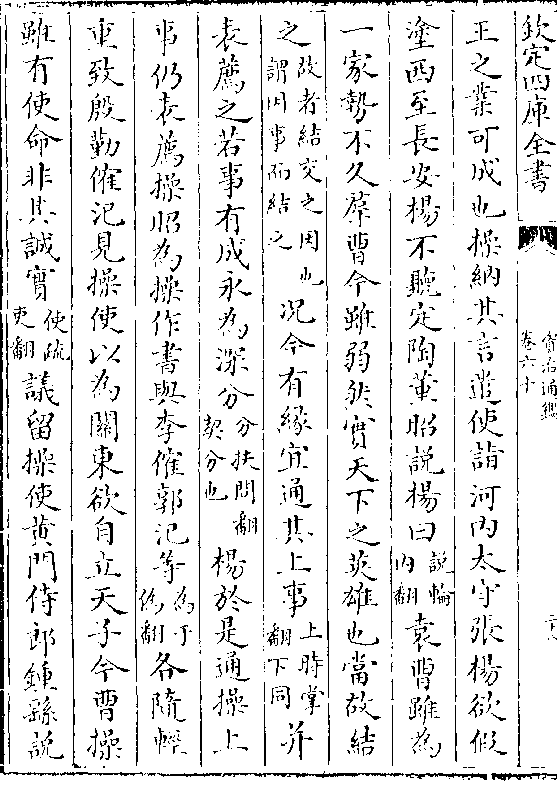 欽定四庫全書
資治通鑑
卷六十
王之業可成也操納其言遣使詣河內太守張楊欲假
塗西至長安楊不聽定陶董昭說楊曰說輸內翻袁曹雖為
一家勢不久羣曹今雖弱然實天下之英雄也當故結
之故者結交之因也謂因事而結之況今有緣宜通其上事上時掌翻下同并
表薦之若事有成永為深分分扶問翻契分也楊於是通操上
事仍表薦操昭為操作書與李傕郭汜等為于偽翻各隨輕
重致殷勤傕汜見操使以為關東欲自立天子今曹操
雖有使命非其誠實使疏吏翻議留操使黃門侍郎鍾繇說